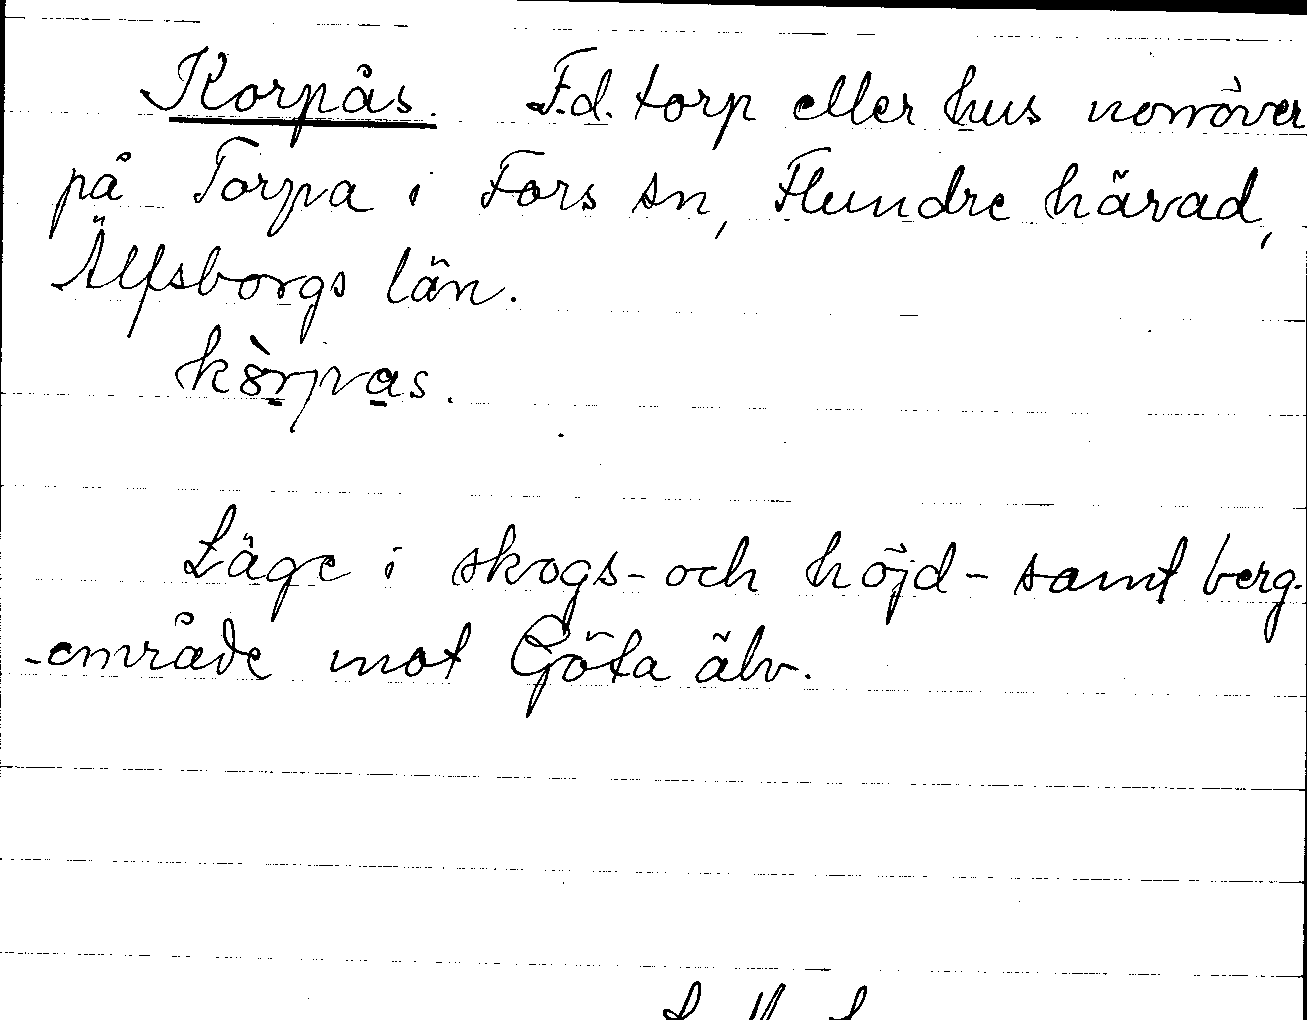 Korpås. F.d. torp eller hus norröver
på Torpa i Fors sn, Flundre härad,
Älfsborgs län.
kòrpas.
Läge i skogs- och höjd- samt berg-
-område mot Göta älv.